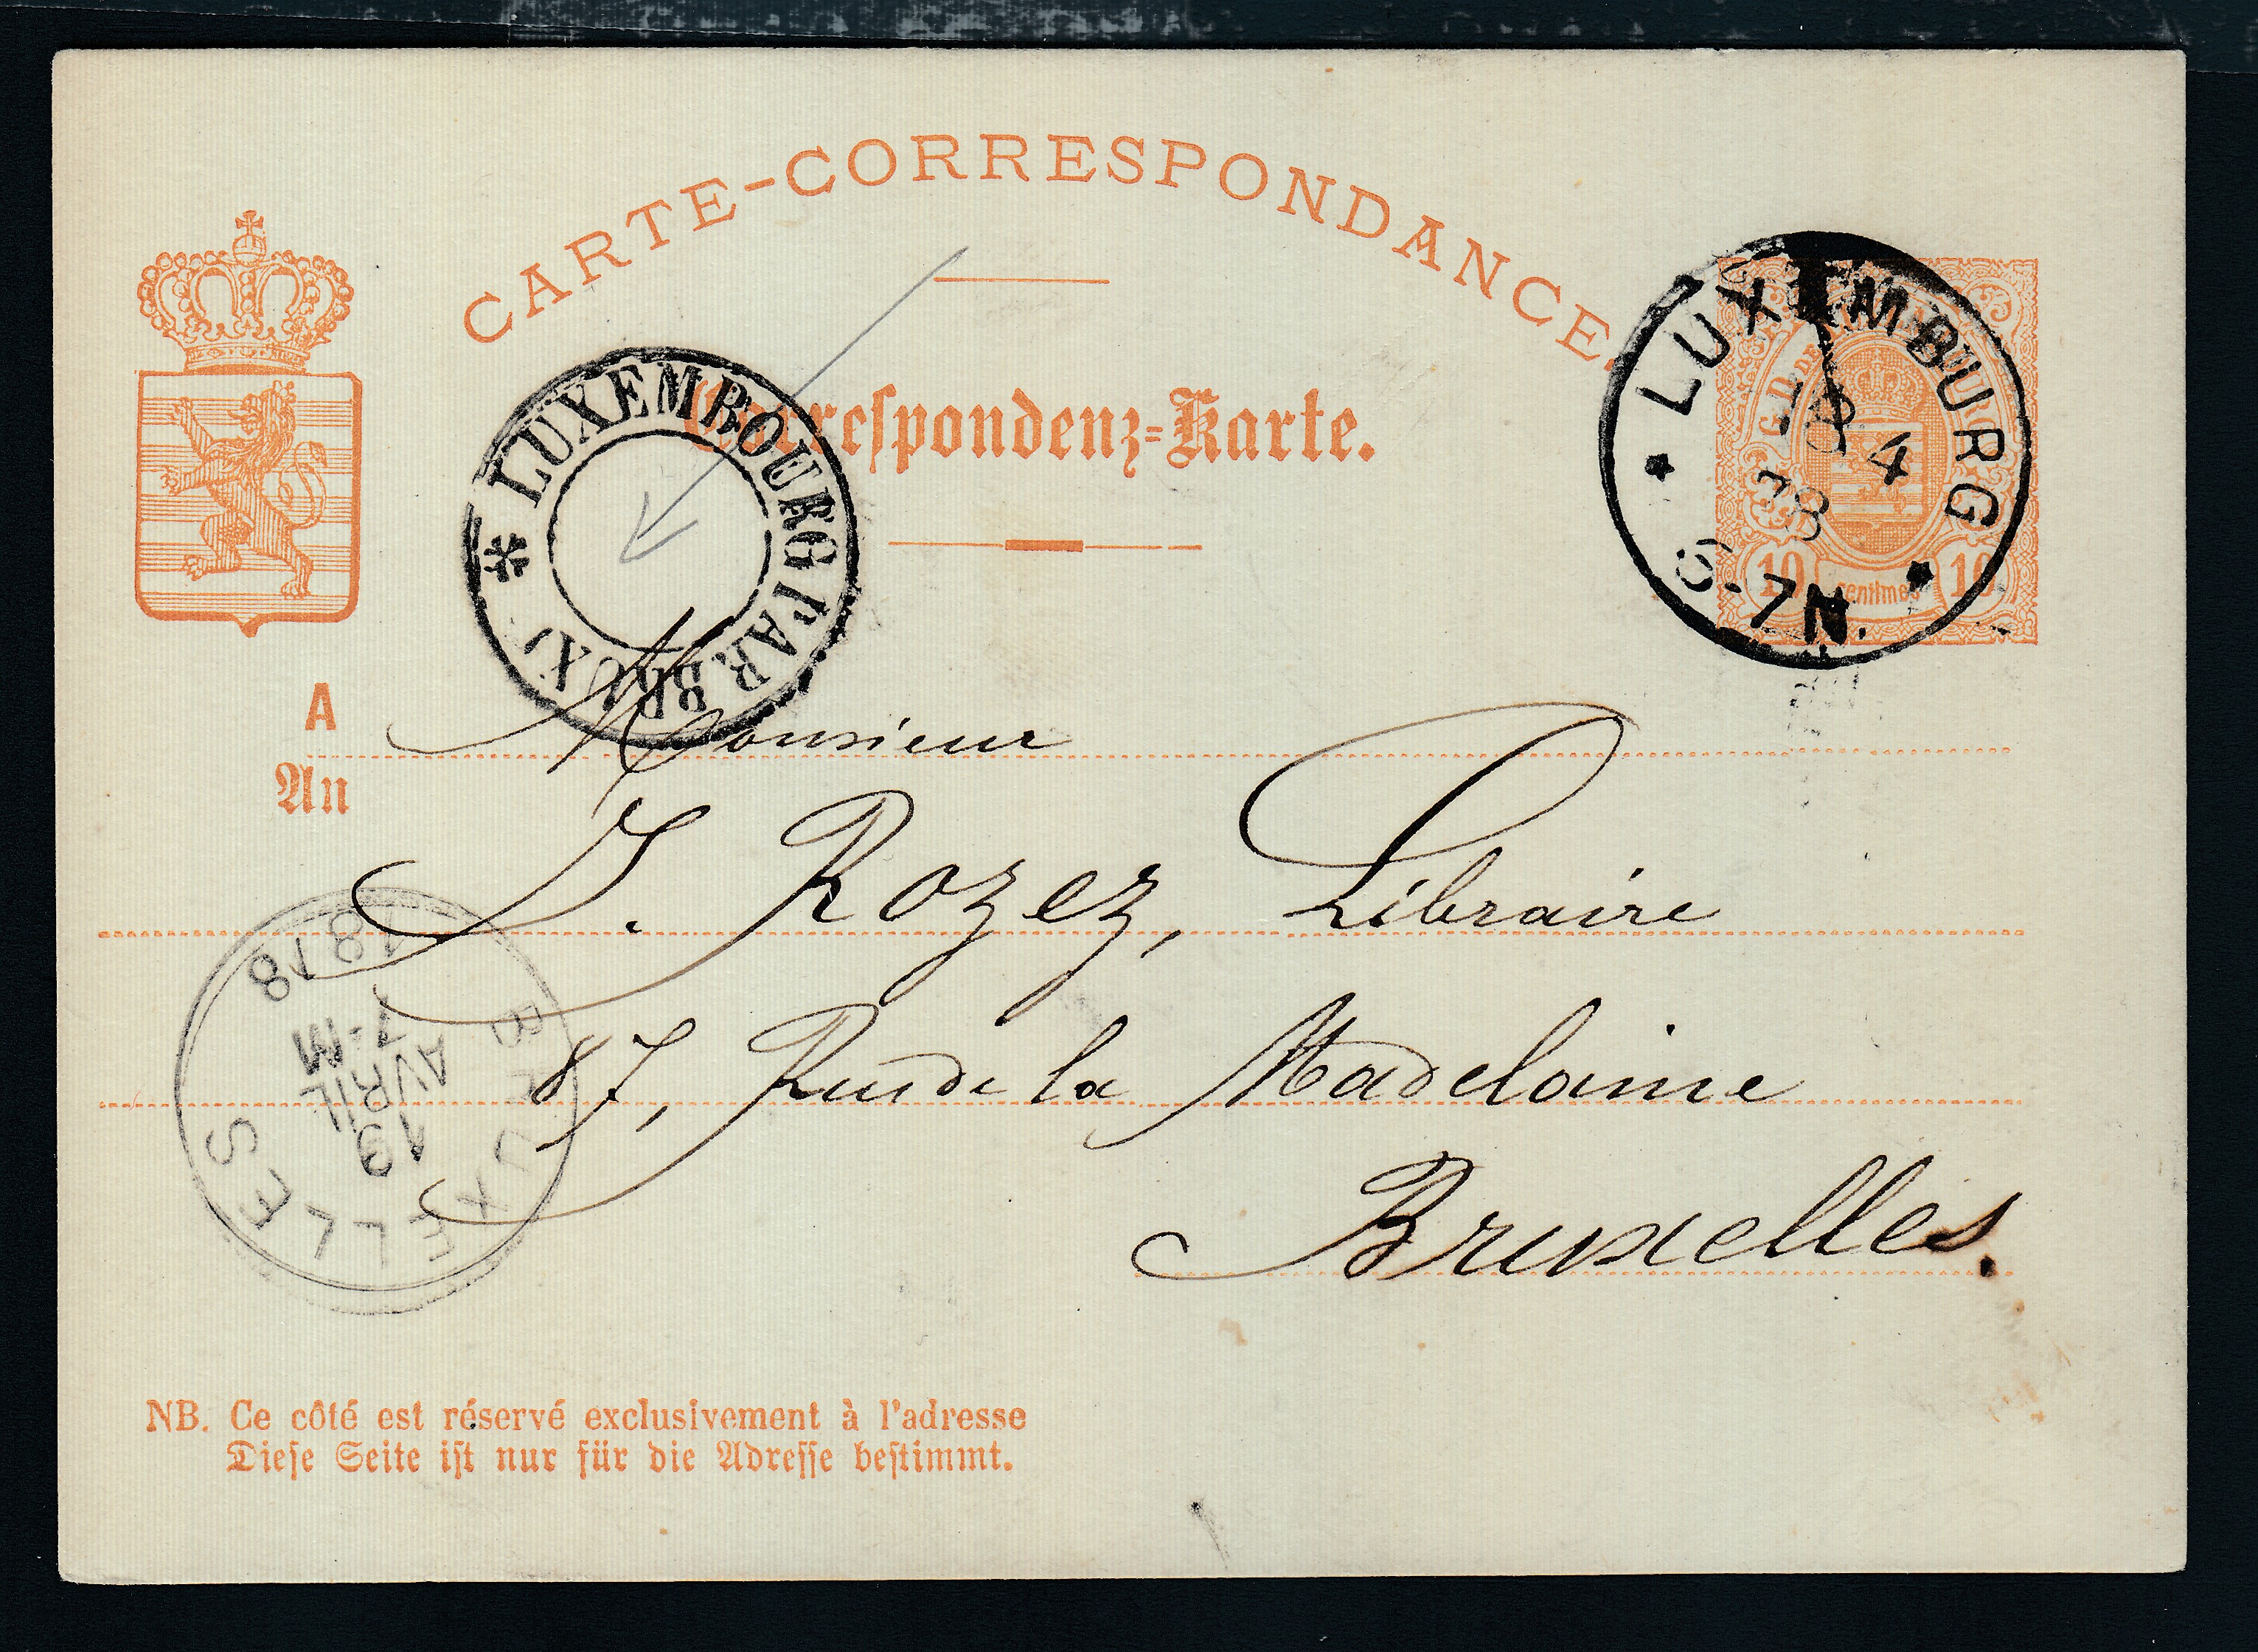 CARTE-CORRESPONDANCE.
Correspondenz-Karte.
LUXEMBURG
18 4
78
6-7N.
G. D. DE
10 centimes 10
* LUXEMBOURG PAR BRUX)
A
An
Monsieur
J. Rozez, Libraire
87, Rue de la Madelaine
Bruxelles.
BRUXELLES
19
AVRIL
7-M
1878
NB. Ce côté est réservé exclusivement à l'adresse
Dieſe Seite iſt nur für die Adreſſe beſtimmt.